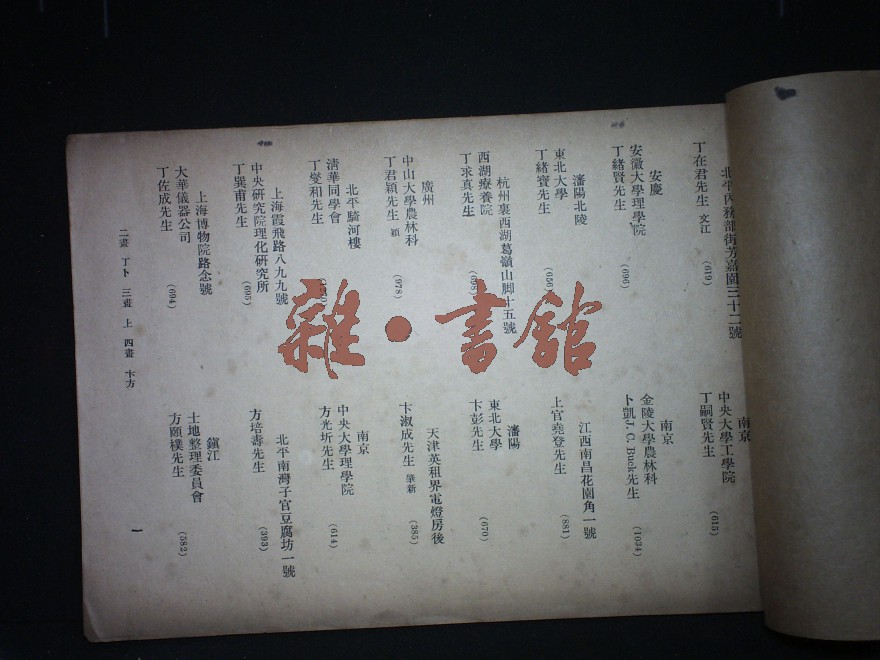 北平內務部街芳嘉園三十二號
丁在君先生 文江
(619)
安慶
安徽大學理學院
丁緒賢先生
(696)
瀋陽北陵
東北大學
丁緒寶先生
(656)
杭州裏西湖葛嶺山脚十五號
西湖療養院
丁求真先生
廣州
中山大學農林科
丁君穎先生 穎
(978)
北平騎河樓
清華同學會
丁燮和先生
上海霞飛路八九九號
中央研究院理化研究所
丁巽甫先生
(695)
上海博物院路念號
大華儀器公司
丁佐成先生
(694)
南京
中央大學工學院
丁嗣賢先生
(615)
南京
金陵大學農林科
卜凱J. C. Buck先生
(1034)
江西南昌花園角一號
上官堯登先生
(881)
瀋陽
東北大學
卞彭先生
(670)
天津英租界電燈房後
卞淑成先生 肇新
(385)
南京
中央大學理學院
方光圻先生
(614)
北平南灣子官豆腐坊一號
方培壽先生
(393)
鎮江
土地整理委員會
方頤樸先生
(582)
二畫 丁卜 三畫 上 四畫 卞方
一
雜·書館